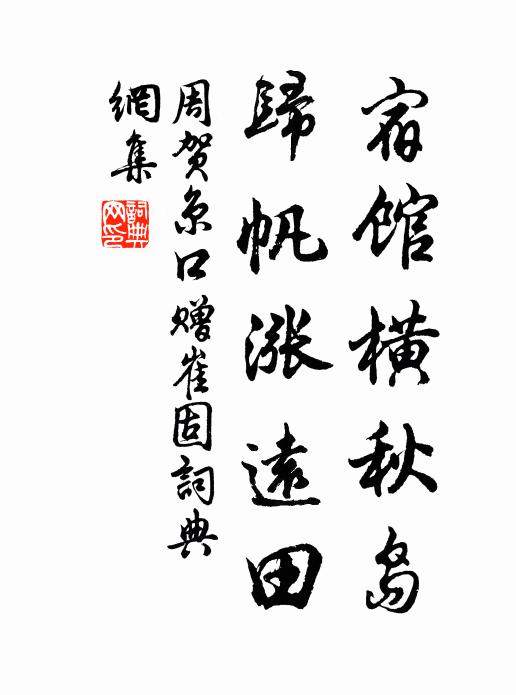 宿館橫秋島
歸帆漲遠田
周賀京口贈崔固詞典
網集
詞典網印